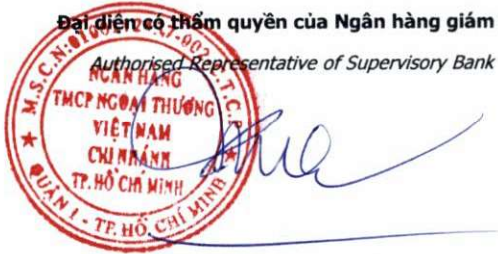 Đại diện có thẩm quyền của Ngân hàng giám
Authorised Representative of Supervisory Bank
NGÂN HÀNG
TMCP NGOẠI THƯƠNG
VIỆT NAM
CHI NHÁNH
TP. HỒ CHÍ MINH
QUẬN 1 - TP. HỒ CHÍ MINH